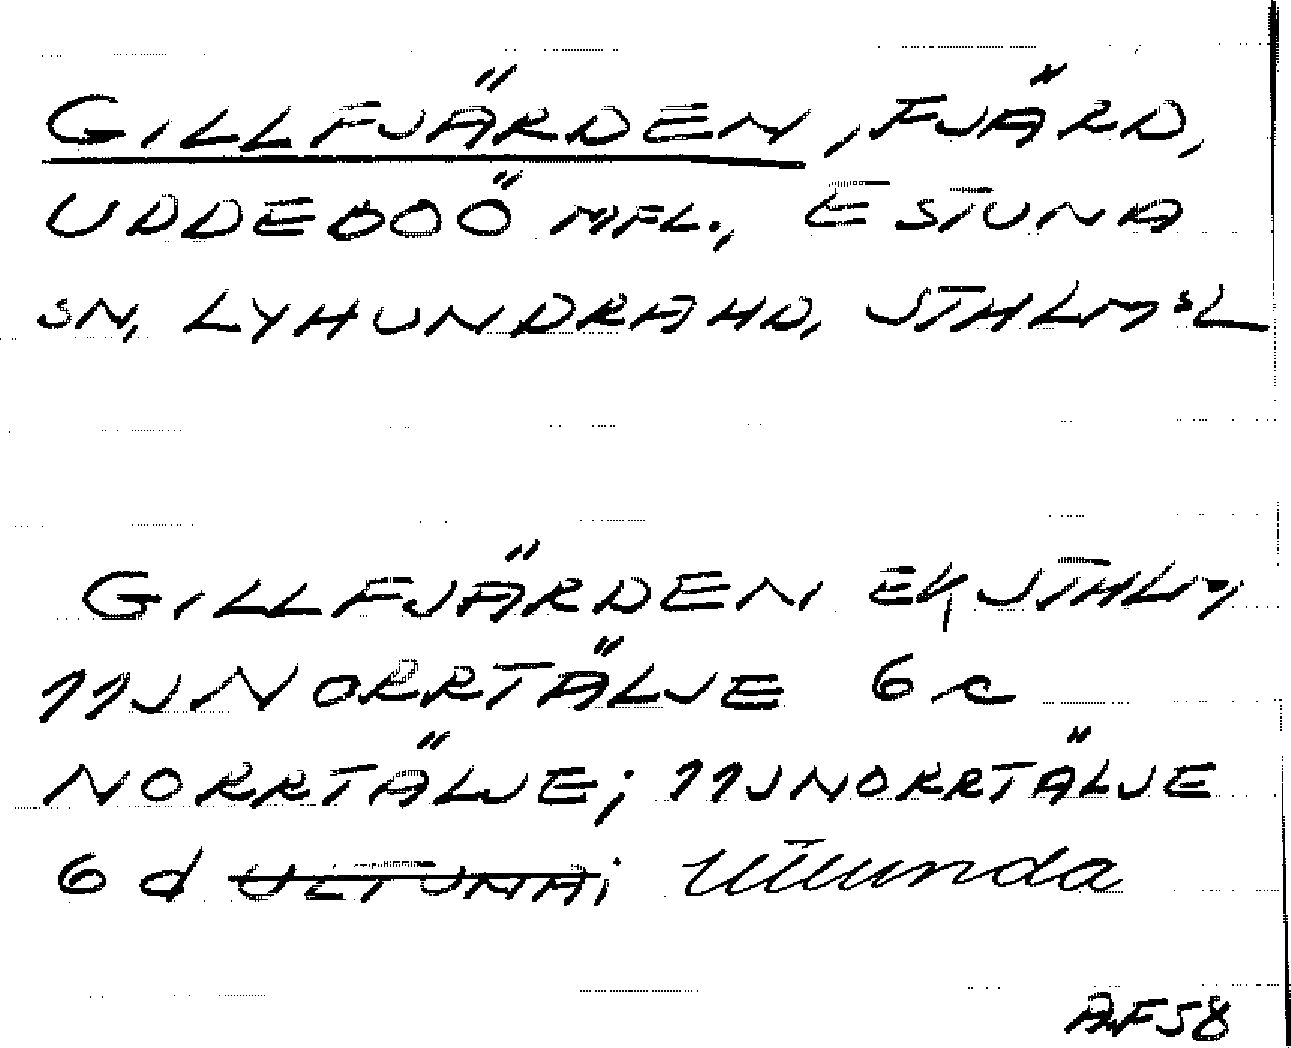 GILLFJÄRDEN, FJÄRD,
UDDEBOÖ MFL., ESTUNA
SN, LYHUNDRA HD, STHLMSL
GILLFJÄRDEN EK STHLM,
11J NORRTÄLJE 6c
NORRTÄLJE; 11J NORRTÄLJE
6d ULTUNA; Ullunda
A.F 58